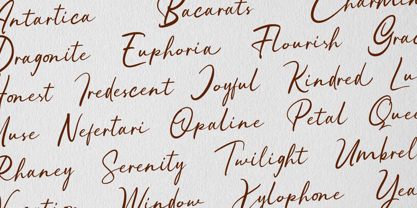 Antartica Bacarats Charmin
Dragonite Euphoria Flourish Grac
Honest Iredescent Joyful Kindred Lu
Muse Nefertari Opaline Petal Quee
Rhaney Serenity Twilight Umbrel
Window Xylophone Yea